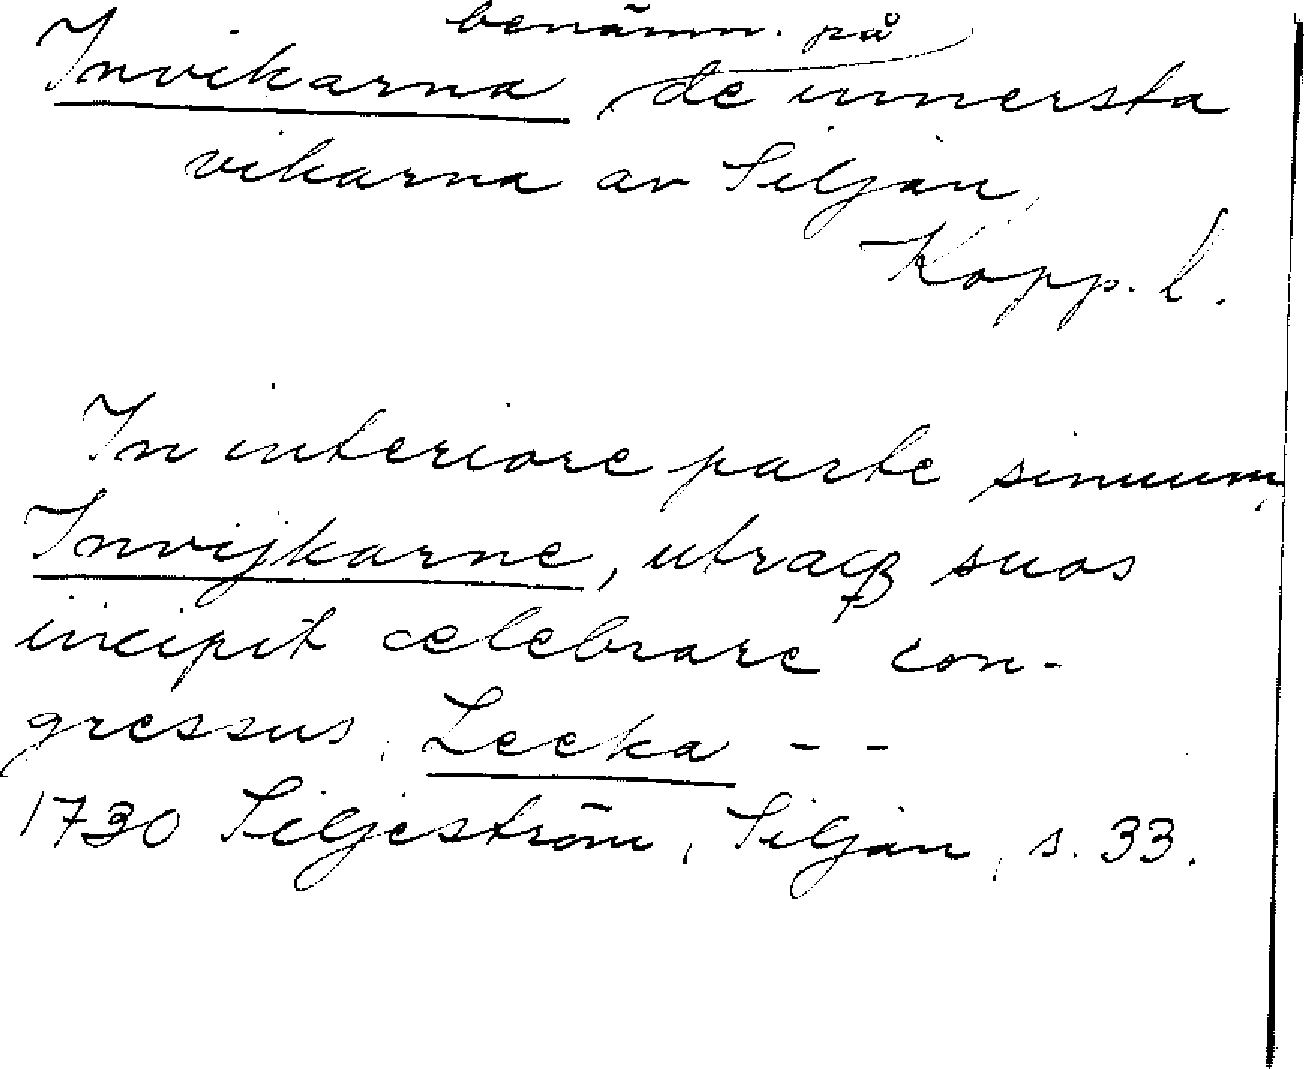 benämn. på
Invikarna, de innersta
vikarna av Siljan,
Kopp. l.
In interiore parte sinuum,
Invijkarne, utraqꝫ suos
incipit celebrare con-
gressus, Lecka - -
1730 Siljeström, Siljan, s. 33.